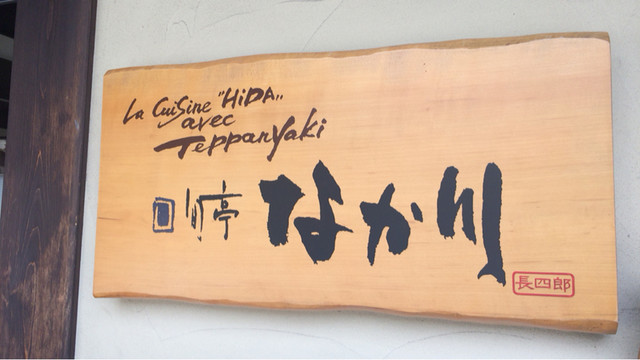 La Cuisine "HiDA"
avec
TeppanYaki
旬亭 なか川
長四郎